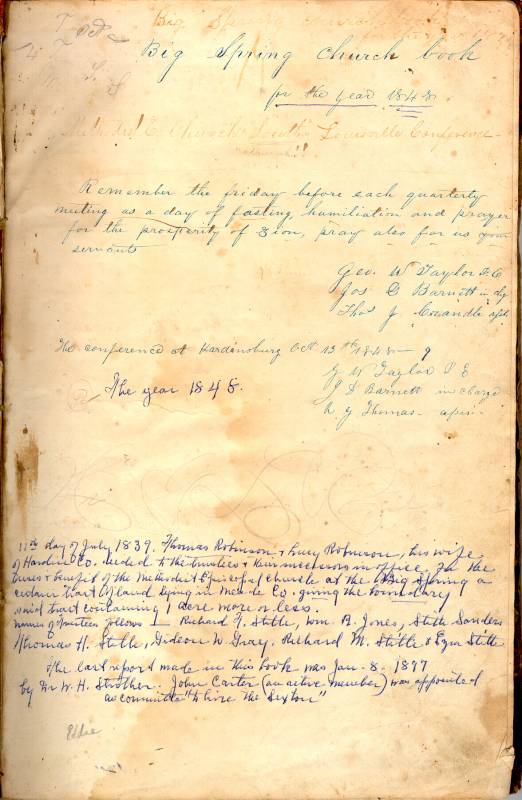 Big Spring church book
for the year 1848
Methodist E. Church South Louisville Conference
Remember the friday before each quarterly
meeting as a day of fasting, humiliation and prayer
for the prosperity of Zion, pray also for us your
servants
Geo. W Taylor P. E
Jos D Barnett in chg
Thos J
The conference at Hardinsburg Oct 13th 1848 - 9
G W Taylor P E
The year 1848.
J D Barnett in charge
R. G Thomas
11th day of July 1839. Thomas Robinson & Lucy Robinson, his wife,
of Hardin Co. deeded to the trustees & their successors in office, for the
uses & benefit of the Methodist Episcopal Church at the Big Spring a
certain tract of land lying in Meade Co. giving the boundary
said tract containing 1 acre more or less.
names of trustees follows Richard H. Stith, Wm. B. Jones, Stith Sanders
Thomas H. Stith, Gideon W. Gray, Richard M. Stith & Ezra Stith
The last report made in this book was Jan. 8. 1877
by Dr W. H. Strother. John Carter (an active member) was appointed
as committee "to hire the Sexton"